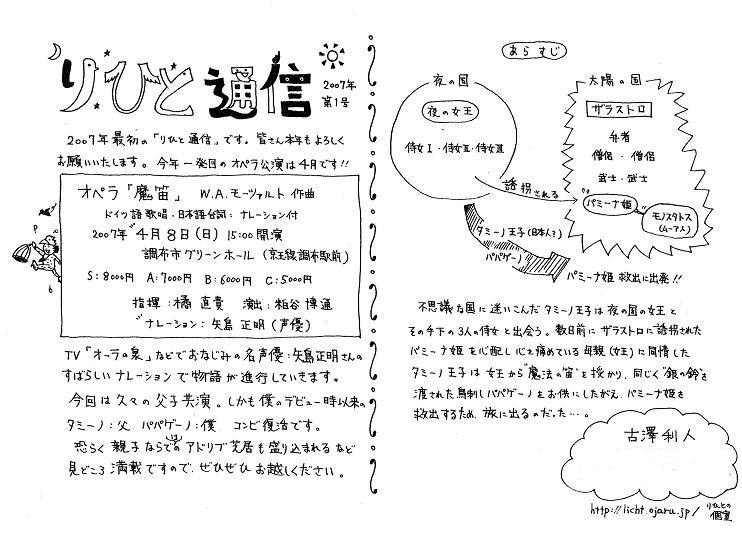 りひと通信
2007年
第1号
2007年最初の「りひと通信」です。皆さん本年もよろしく
お願いいたします。今年一発目のオペラ公演は4月です!!
オペラ「魔笛」 W.A.モーツァルト作曲
ドイツ語歌唱・日本語台詞:ナレーション付
2007年4月8日(日) 15:00開演
調布市グリーンホール(京王線調布駅前)
S:8000円 A:7000円 B:6000円 C:5000円
指揮:橘 直貴 演出:粕谷 博通
ナレーション:矢島 正明(声優)
TV「オーラの泉」などでおなじみの名声優:矢島正明さんの
すばらしいナレーションで物語が進行していきます。
今回は久々の父子共演。しかも僕のデビュー時以来の
タミーノ:父 パパゲーノ:僕 コンビ復活です。
恐らく親子ならでのアドリブ芝居も盛り込まれるなど
は
見どころ満載ですので、ぜひぜひお越しください。
あらすじ
夜の国
夜の女王
侍女I・侍女II・侍女III
太陽の国
ザラストロ
弁者
僧侶・僧侶
武士・武士
誘拐される
パミーナ姫
モノスタトス
(ムーア人)
タミーノ王子(日本人?)
パパゲーノ
パミーナ姫救出に出発!!
不思議な国に迷いこんだタミーノ王子は夜の国の女王と
その手下の3人の侍女と出会う。数日前にザラストロに誘拐された
パミーナ姫を心配し心を痛めている母親(女王)に同情した
タミーノ王子は女王から"魔法の笛"を授かり、同じく"銀の鈴"を
渡された鳥刺しパパゲーノをお供にしたがえ、パミーナ姫を
救出するため、旅に出るのだった…。
古澤利人
http://licht.ojaru.jp/
りひとの
個室